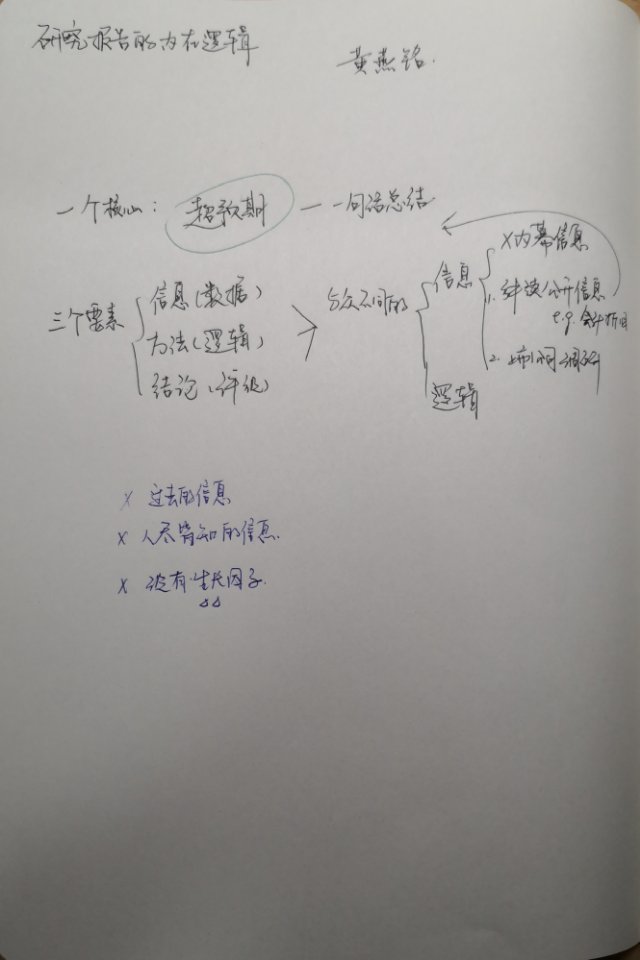 研究报告的内在逻辑
黄燕铭.
一个核心: 超预期 — 一句话总结
三个要素
信息(数据)
方法(逻辑)
结论(评级)
与众不同的
信息
X内幕信息
1. 解读公开信息
e.g. 会计折旧
2. 上市公司调研
逻辑
X 过去的信息
X 人尽皆知的信息.
X 没有生长因子.